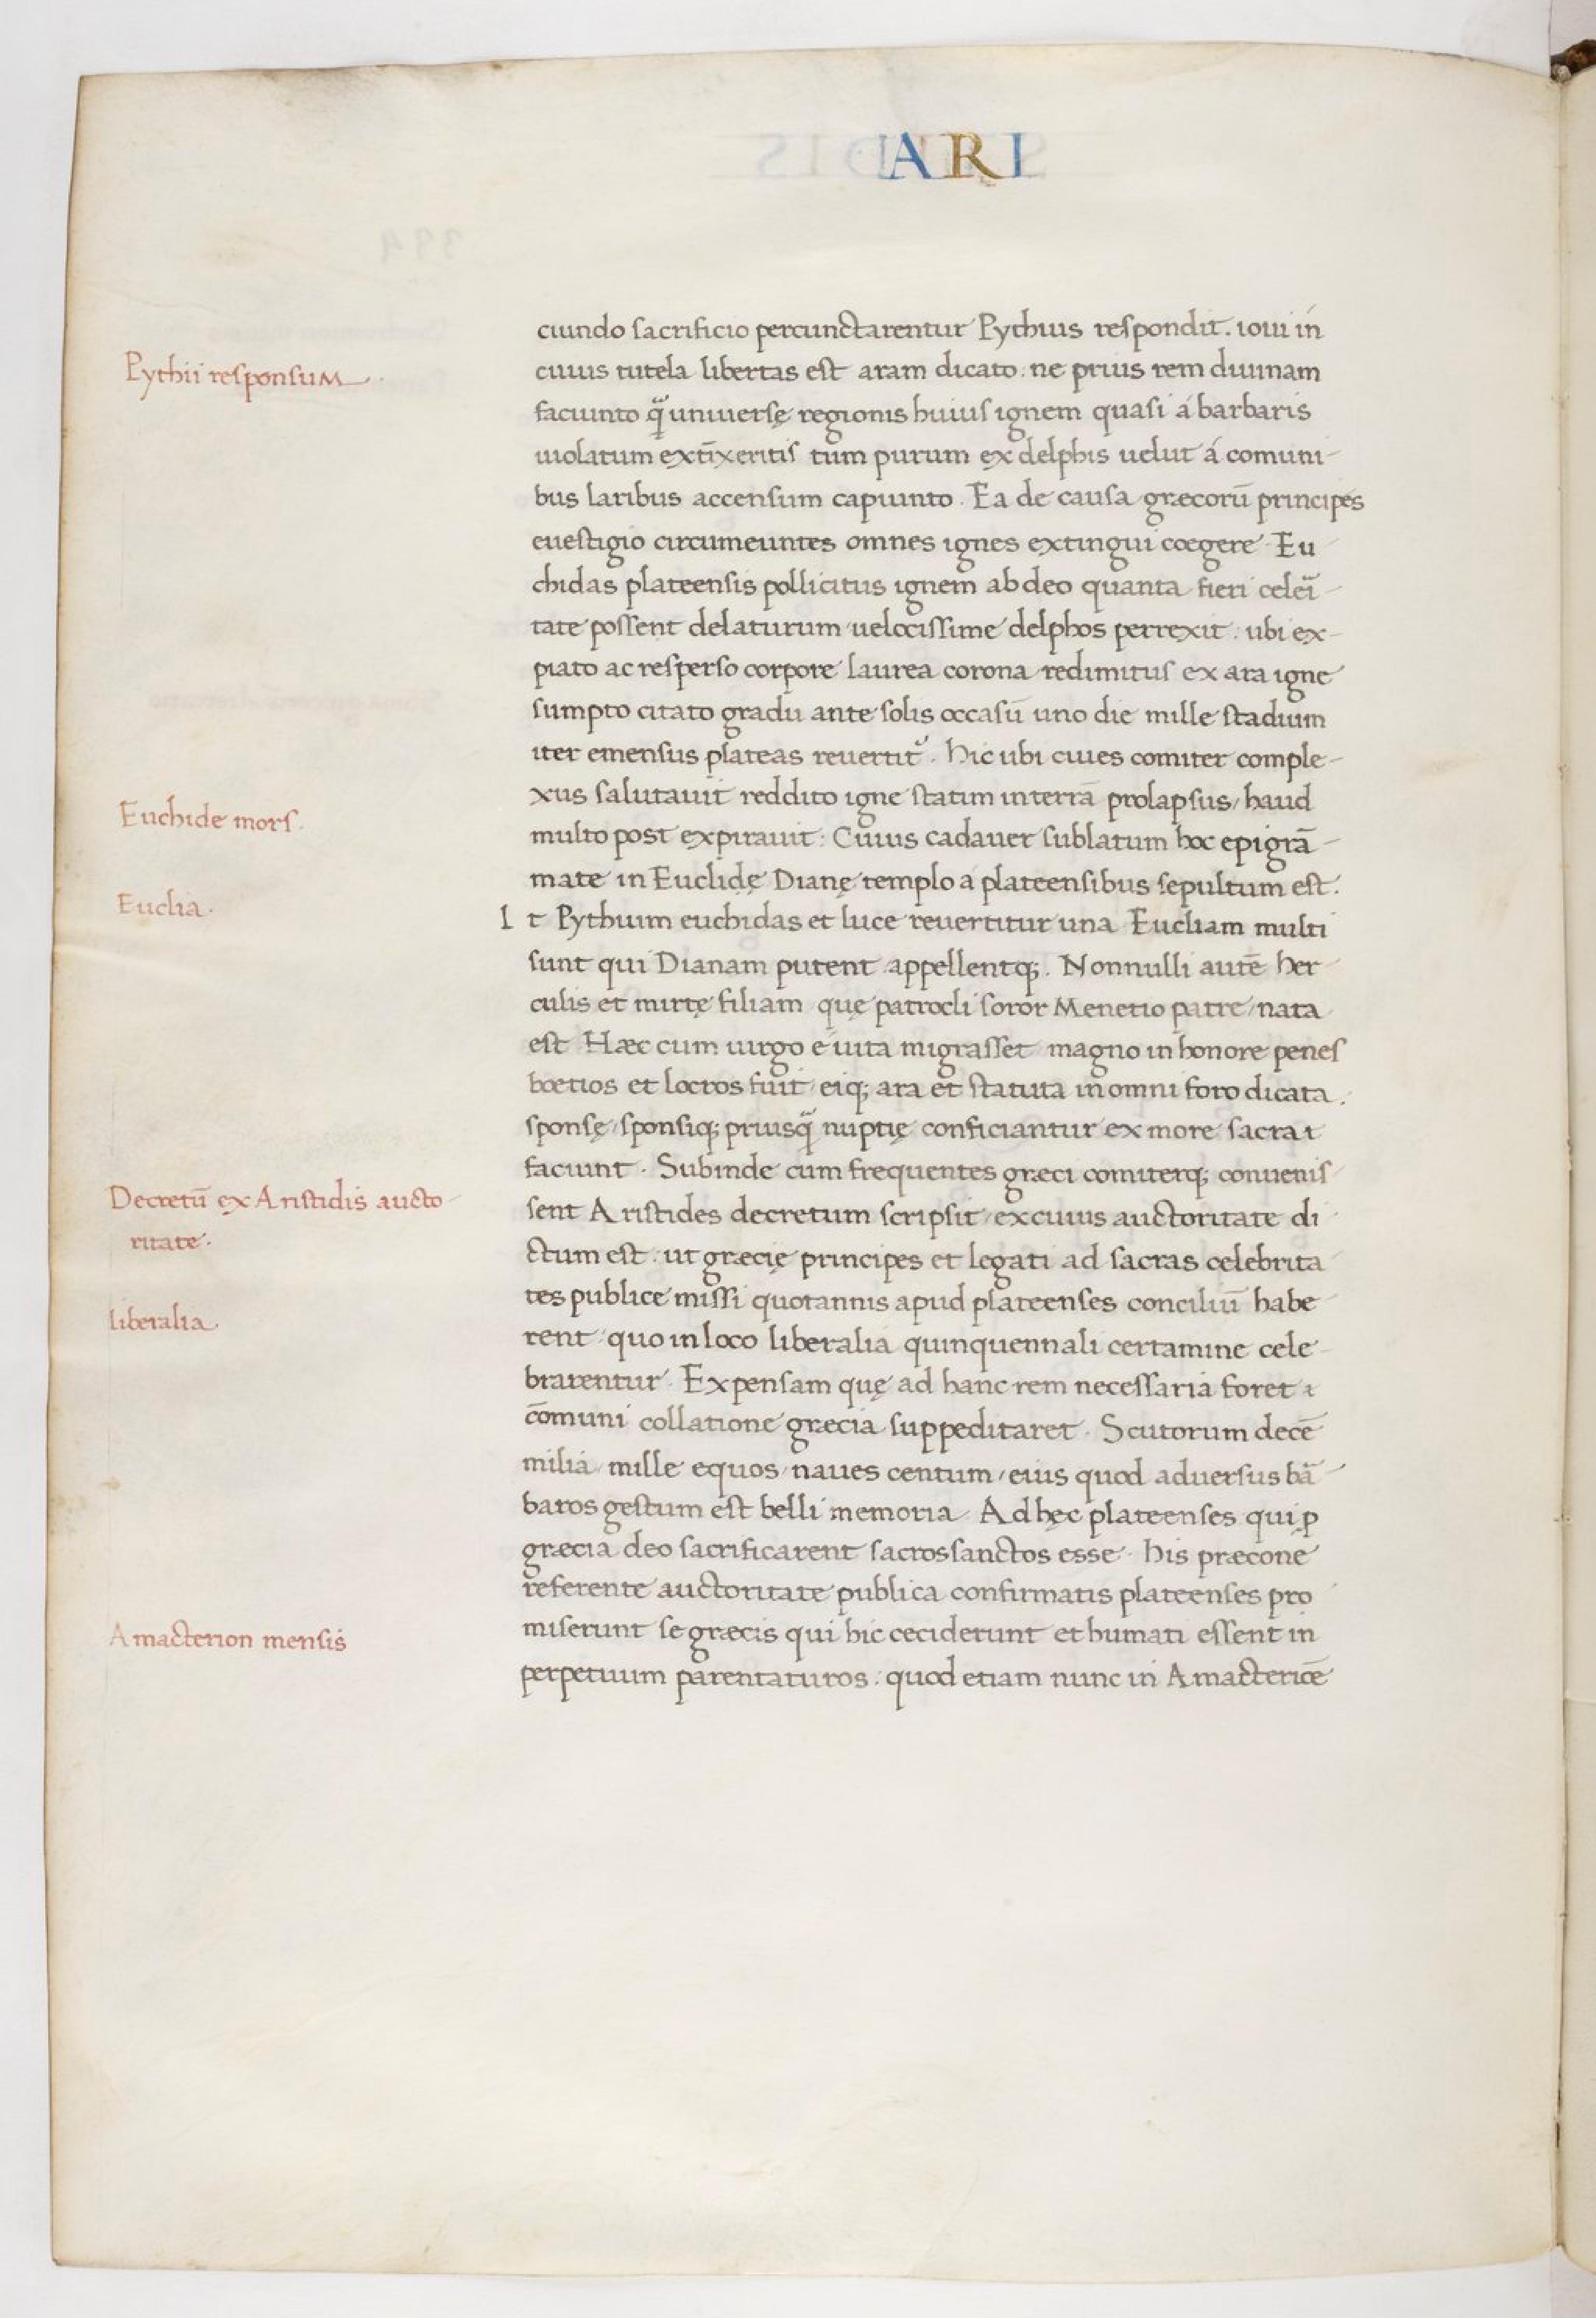 ARI
ciundo sacrificio percunctarentur Pythius respondit. ioui in
Pythii responsum
cuius tutela libertas est aram dicato: ne prius rem diuinam
faciunto q̃ uniuersę regionis huius ignem quasi á barbaris
uiolatum extĩxeritis tum purum ex delphis uelut á comuni-
bus laribus accensum capiunto. Ea de causa græcorũ principes
euestigio circumeuntes omnes ignes extingui coegere. Eu
chidas plateensis pollicitus ignem ab deo quanta fieri celeı̃-
tate possent delaturum uelocissime delphos perrexit: ubi ex-
piato ac resperso corpore laurea corona redimitus ex ara igne
sumpto citato gradu ante solis occasũ uno die mille stadium
iter emensus plateas reuertit᷑. hic ubi ciues comiter comple-
xus salutauit reddito igne statim in terrã prolapsus/ haud
Euchide mors.
multo post expirauit: Cuius cadauer sublatum hoc epigrã-
mate in Euclidę Dianę templo a plateensibus sepultum est.
Euclia.
I t Pythium euchidas et luce reuertitur una Eucliam multi
sunt qui Dianam putent appellentq;. Nonnulli autẽ her-
culis et mirtę filiam quę patrocli soror Menetio patre/nata
est Hæc cum uirgo é uita migrasset magno in honore penes
boetios et locros fuit/ eiq; ara et statuta in omni foro dicata.
sponsę/sponsiq; priusq̃ nuptię conficiantur ex more sacra
faciunt. Subinde cum frequentes græci comiterq; conuenis-
Decretũ ex Aristidis aucto-
sent Aristides decretum scripsit/ex cuius auctoritate di
ritate.
ctum est: ut græcię principes et legati ad sacras celebrita
tes publice missi quotannis apud plateenses conciliũ habe
liberalia.
rent/quo in loco liberalia quinquennali certamine cele
brarentur. Expensam quę ad hanc rem necessaria foret
cõmuni collatione græcia suppeditaret. Scutorum decẽ
milia/mille equos/naues centum/eius quod aduersus bã-
baros gestum est belli memoria. Ad hęc plateenses qui ꝑ
græcia deo sacrificarent sacrossanctos esse. his præcone
referente auctoritate publica confirmatis plateenses pro
miserunt se græcis qui hic ceciderunt et humati essent in
Amacterion mensis
perpetuum parentaturos: quod etiam nunc in Amactericẽ